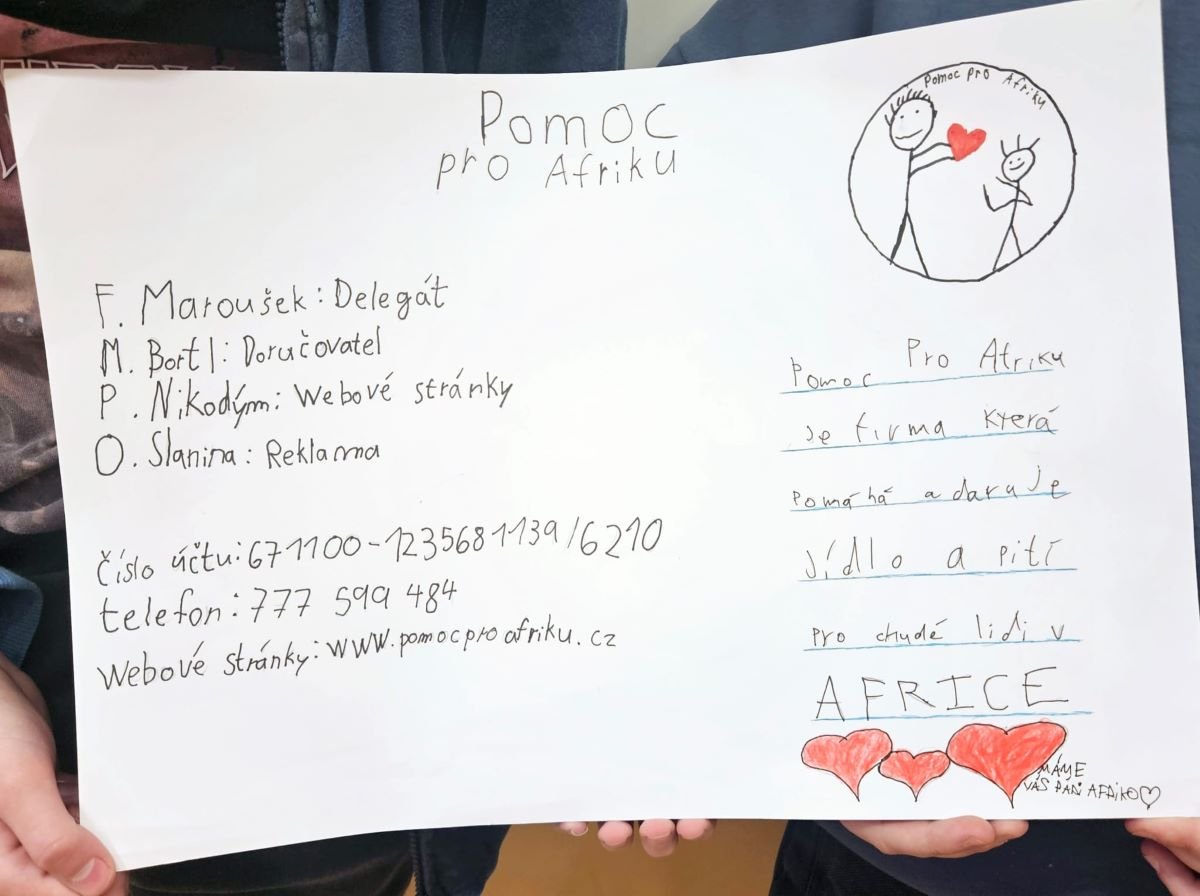 Pomoc
pro Afriku
Pomoc pro Afriku
F. Maroušek: Delegát
M. Bortl: Doručovatel
P. Nikodým: Webové stránky
O. Slanina: Reklama
číslo účtu: 671100-1235681139/6210
telefon: 777 599 484
Webové stránky: www.pomocproafriku.cz
Pomoc Pro Afriku
je firma která
pomáhá a daruje
jídlo a pití
pro chudé lidi v
AFRICE
MÁME
VÁS RÁDI AFRIKO